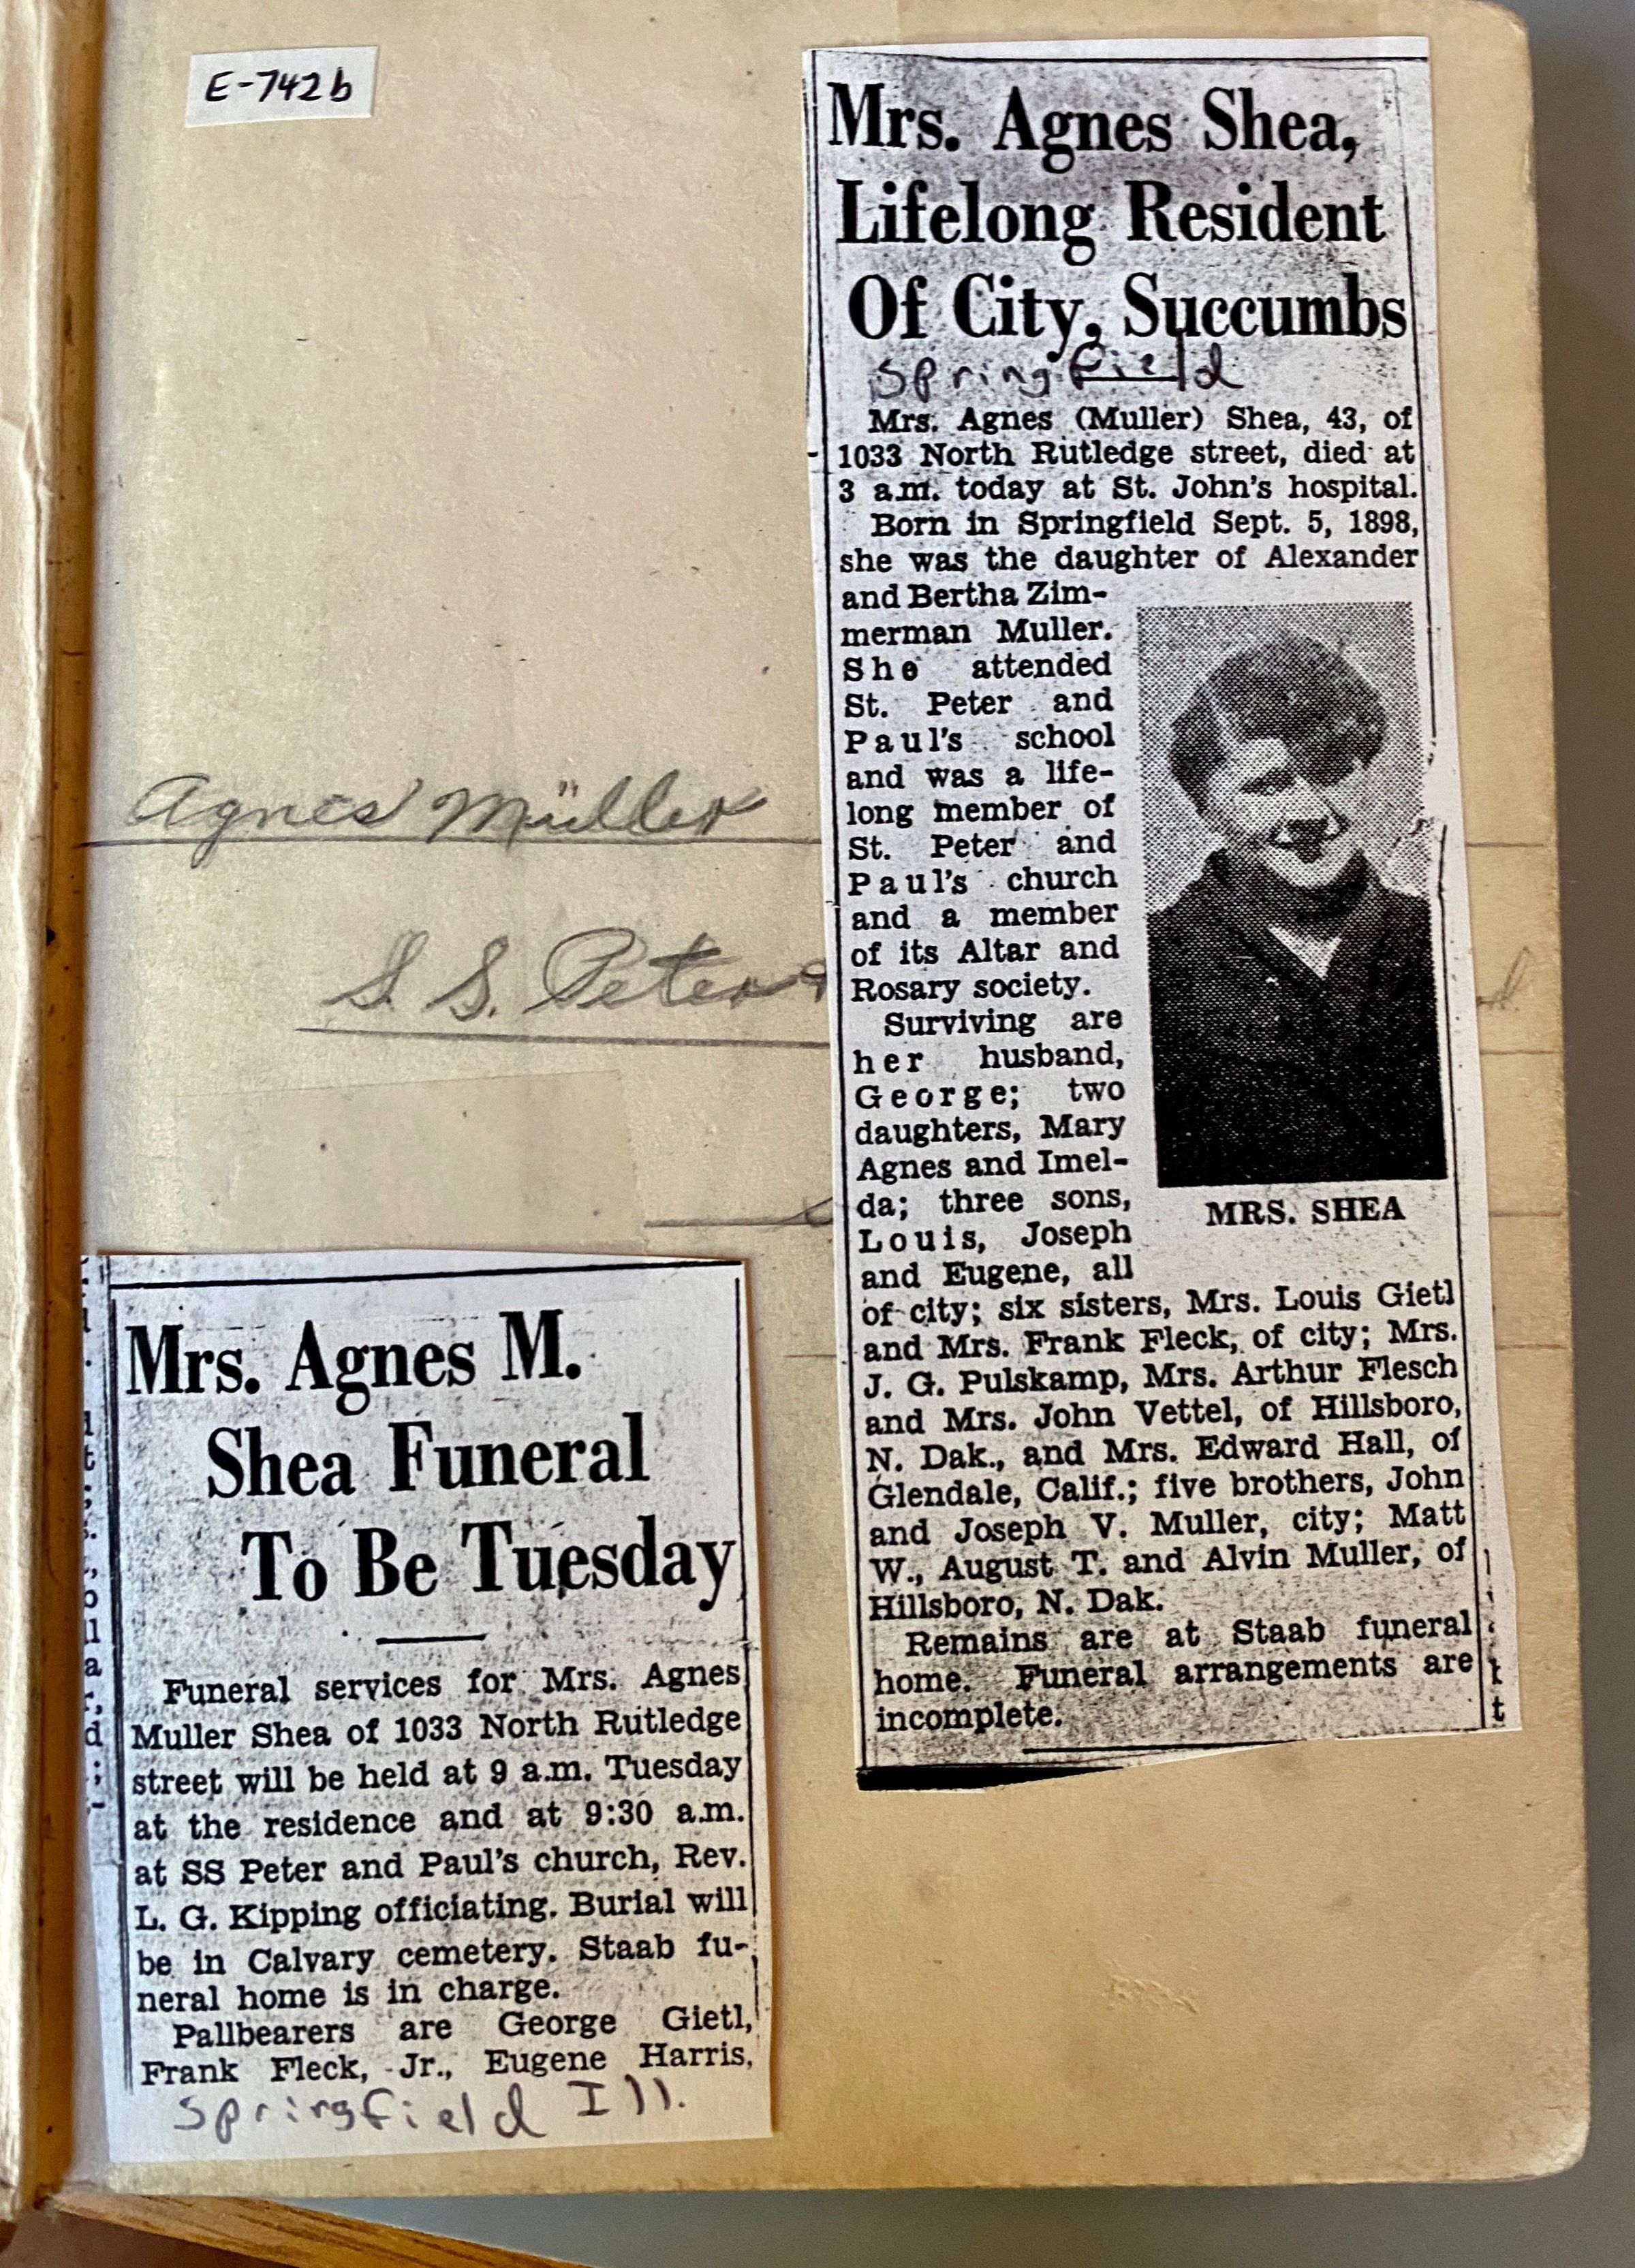 E-742b
Mrs. Agnes Shea,
Lifelong Resident
Of City, Succumbs
Springfield
Mrs. Agnes (Muller) Shea, 43, of
1033 North Rutledge street, died at
3 a.m. today at St. John's hospital.
Born in Springfield Sept. 5, 1898,
she was the daughter of Alexander
and Bertha Zim-
merman Muller.
She attended
St. Peter and
Paul's school
and was a life-
long member of
St. Peter and
Paul's church
and a member
of its Altar and
Rosary society.
Surviving are
her husband,
George; two
daughters, Mary
Agnes and Imel-
da; three sons,
Louis, Joseph
and Eugene, all
of city; six sisters, Mrs. Louis Gietl
and Mrs. Frank Fleck, of city; Mrs.
J. G. Pulskamp, Mrs. Arthur Flesch
and Mrs. John Vettel, of Hillsboro,
N. Dak., and Mrs. Edward Hall, of
Glendale, Calif.; five brothers, John
and Joseph V. Muller, city; Matt
W., August T. and Alvin Muller, of
Hillsboro, N. Dak.
Remains are at Staab funeral
home. Funeral arrangements are
incomplete.
MRS. SHEA
Agnes Müller
S. S. Peter
Mrs. Agnes M.
Shea Funeral
To Be Tuesday
Funeral services for Mrs. Agnes
Muller Shea of 1033 North Rutledge
street will be held at 9 a.m. Tuesday
at the residence and at 9:30 a.m.
at SS Peter and Paul's church, Rev.
L. G. Kipping officiating. Burial will
be in Calvary cemetery. Staab fu-
neral home is in charge.
Pallbearers are George Gietl,
Frank Fleck, Jr., Eugene Harris,
Springfield Ill.